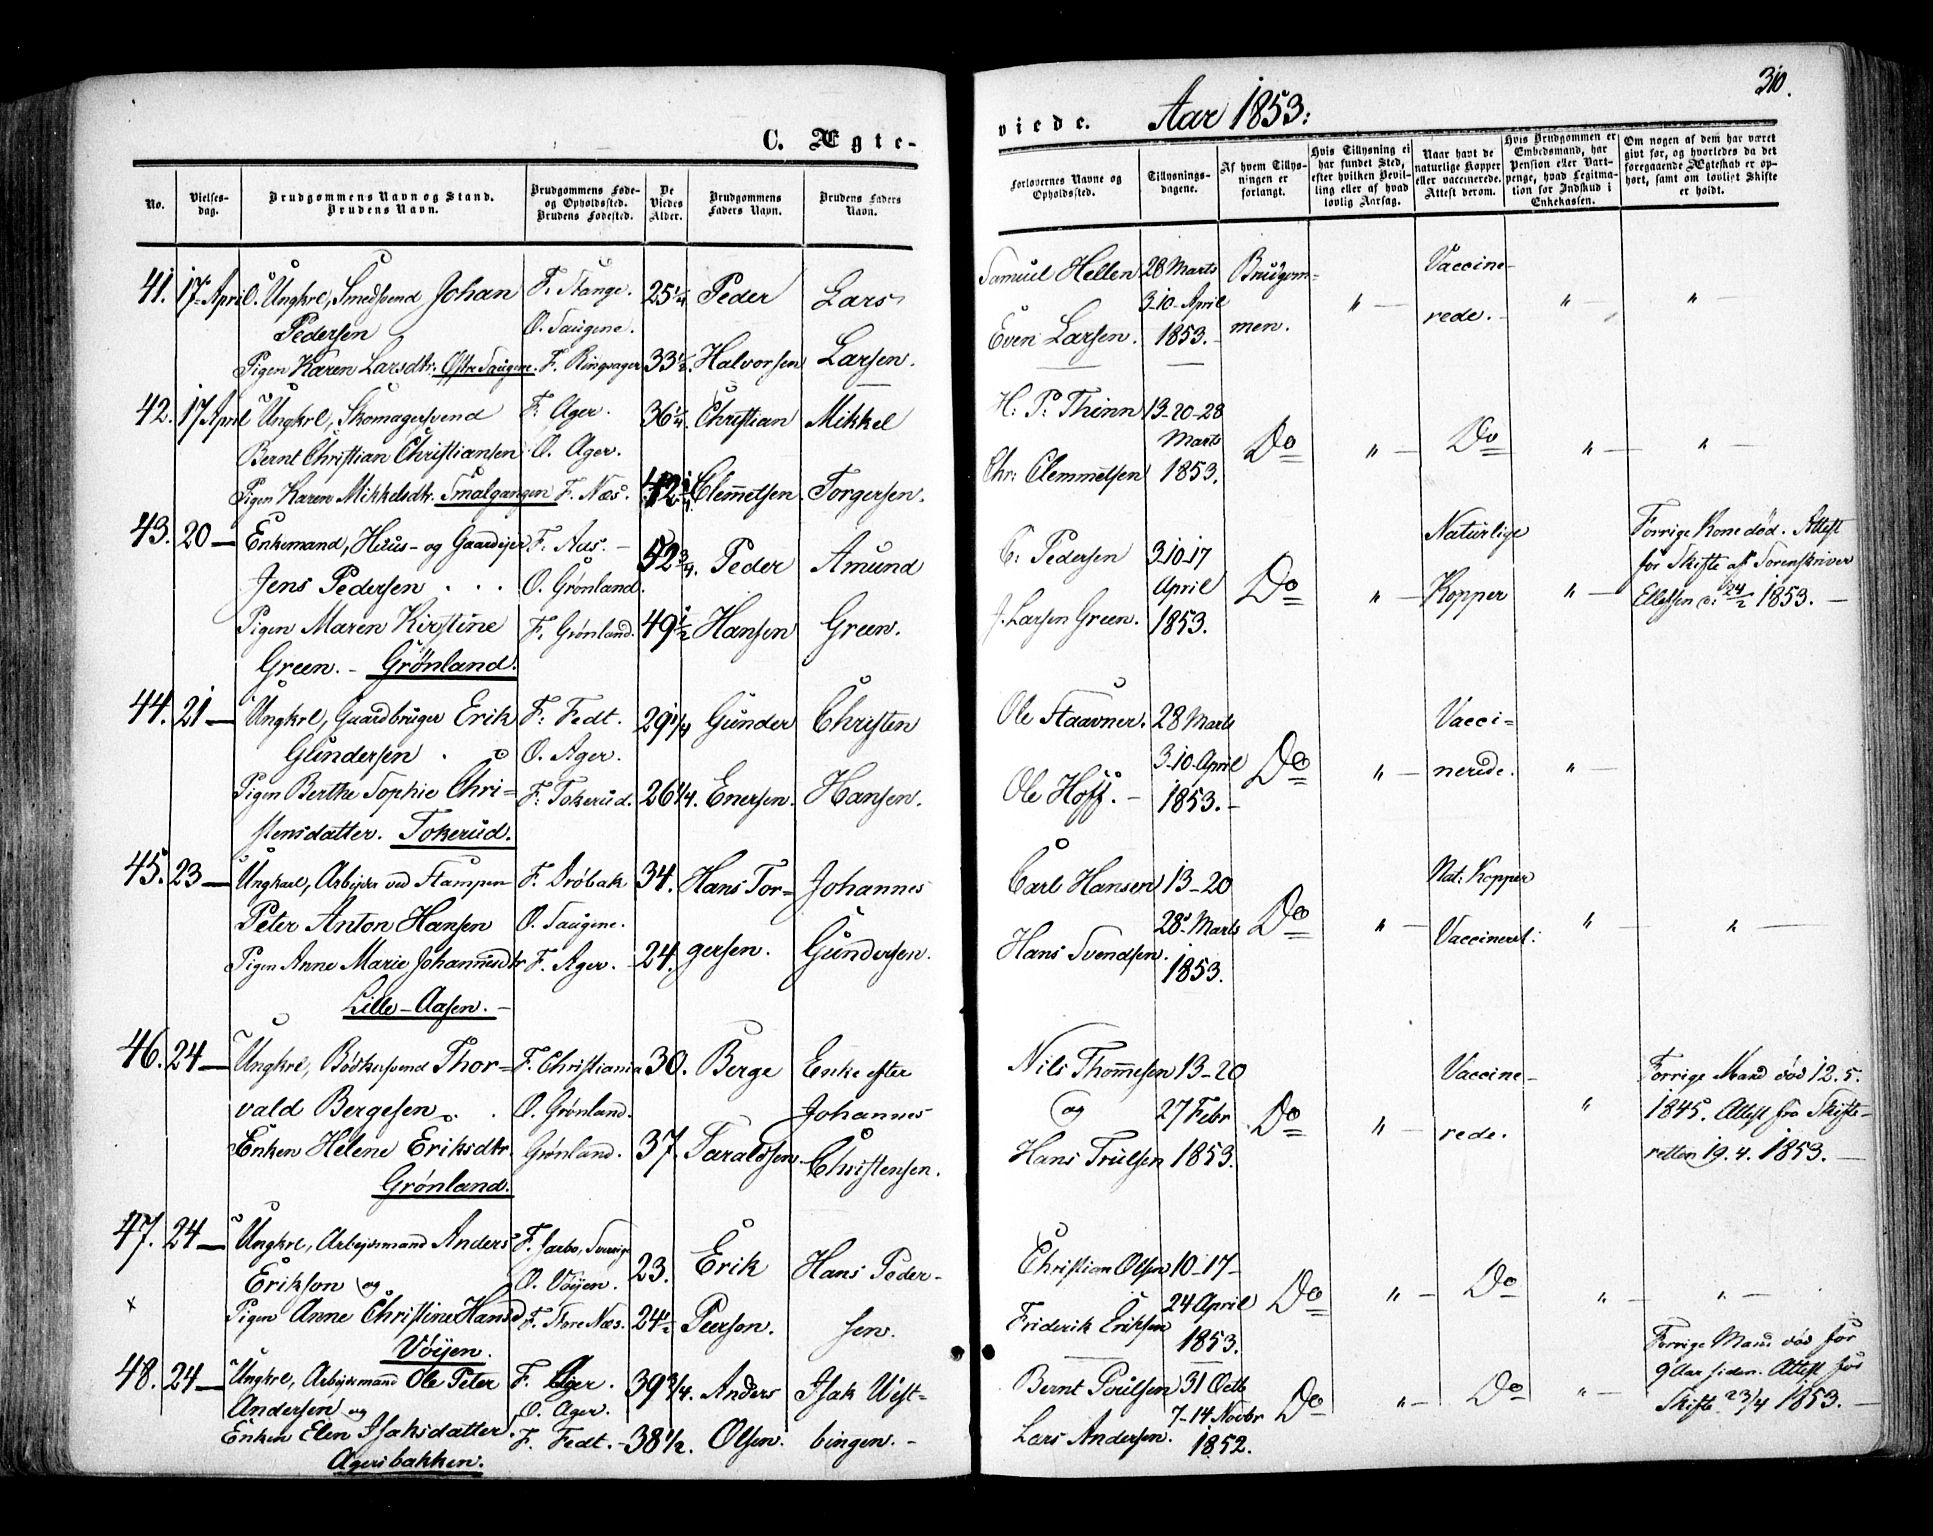 C. Ægte-
No.
Vielses-
dag.
Brudgommens Navn og Stand.
Brudens Navn.
Brudgommens Føde-
og Opholdssted.
Brudens Fødested.
De
Viedes
Alder.
Brudgommens
Faders Navn.
Brudens Faders
Navn.
41. 17 April. Ungkrl, Smedsvend Johan F. Stange. 25 1/4 Peder Lars
Pedersen O. Saugene.
Pigen Karen Larsdtr. Østre Saugene. F. Ringsager 33 1/2. Halvorsen Larsen.
42. 17 April Ungkrl, Skomagersvend F. Ager. 36 1/4. Christian Mikkel
Bernt Christian Christiansen O. Ager.
Pigen Karen Mikkelsdtr. Smalgangen F. Næs. 42 1/4 Clemmetsen. Torgersen.
43. 20 — Enkemand, Huus- og Gaardejer F. Aas. — 52 3/4. Peder Amund
Jens Pedersen . . . O. Grønland.
Pigen Maren Kirstine F. Grønland. 49 1/2 Hansen Green.
Green. — Grønland.
44. 21 — Ungkrl, Gaardbruger Erik F. Fedt. 29 1/4 Gunder Christen
Gundersen . O. Ager.
Pigen Berthe Sophie Chri= F. Tokerud. 26 1/4. Enersen. Hansen.
stensdatter. Tokerud.
45. 23 — Ungkarl, Arbejder ved Stampen F. Drøbak 34. Hans Tor= Johannes
Peter Anton Hansen O. Saugene.
Pigen Anne Marie Johannesdtr F. Ager. 24. gersen. Gundersen.
Lille-Aasen. —
46. 24 — Ungkrl, Bødkersvend Thor= F. Christiania 30. Berge Enke efter
vald Bergesen . . O. Grønland. Johannes
Enken Helene Eriksdtr. Grønland. 37. Taraldsen Christensen.
Grønland.
47. 24 — Ungkrl, Arbejdsmand Anders F. Jarbo, Sverige 23. Erik Hans Peder-
Erikson og O. Vøijen.
x Pigen Anne Christine Hansd F. Store Næs. 24 1/2 Peerson. sen.
Vøijen.
48. 24 — Ungkrl, Arbejdsmand Ole Peter F. Ager. 39 3/4. Anders Isak West-
Andersen og O. Ager.
Enken Elen Isaksdatter. F. Fedt. — 38 1/2. Olsen. bingen. —
Agersbakken.
viede. Aar 1853. 310.
Forlovernes Navne og
Opholdssted.
Tillysnings-
dagene.
Af hvem Tillys-
ningen er
forlangt.
Hvis Tillysning ei
har fundet Sted,
efter hvilken Bevil-
ling eller af hvad
lovlig Aarsag.
Naar havt de
naturlige Kopper
eller vaccinerede.
Attest derom.
Hvis Brudgommen er
Embedsmand, har
Pension eller Vart-
penge, hvad Legitma-
tion for Indskud i
Enkekassen.
Om nogen af dem har været
givt før, og hvorledes da det
foregaaende Ægteskab er op-
hørt, samt om lovligt Skifte
er holdt.
Samuel Hellen 28 Marts Brudgom= Vaccine-
3-10 April " — rede. — " — " —
Even Larsen. 1853. — men.
H. P. Thinn 13-20-28
Marts Do " — Do " — " —
Chr: Clemmetsen 1853.
C. Pedersen 3-10-17 Naturlige Forrige Kone død. Attest
April Do " — Kopper " — for Skifte af Sorenskriver
J. Larsen Green. 1853. 24/2 1853. —
Ole Staavner. 28 Marts Vacci=
3-10-April Do " — nerede. " —
Ole Hoff. — 1853. —
Carl Hansen 13-20 Nat: Kopper
28 Marts Do " — Vaccineret: " — " —
Hans Svendsen. 1853.
Nils Thomesen 13-20 Vaccine- Forrige Mand død 12.5.
og 27 Febr Do " — rede. " 1845. Attest fra Skifte-
Hans Trulsen 1853. retten 19.4. 1853. —
Christian Olsen 10-17-
24 April Do " — Do " — " —
Friderik Eriksen 1853.
Forrige Mand død for
Bernt Poulsen 31 Octb Do " — Do " — 9 Aar siden. Attest for
7-14 Novbr Skifte 23/4 1853. —
Lars Andersen. 1852.